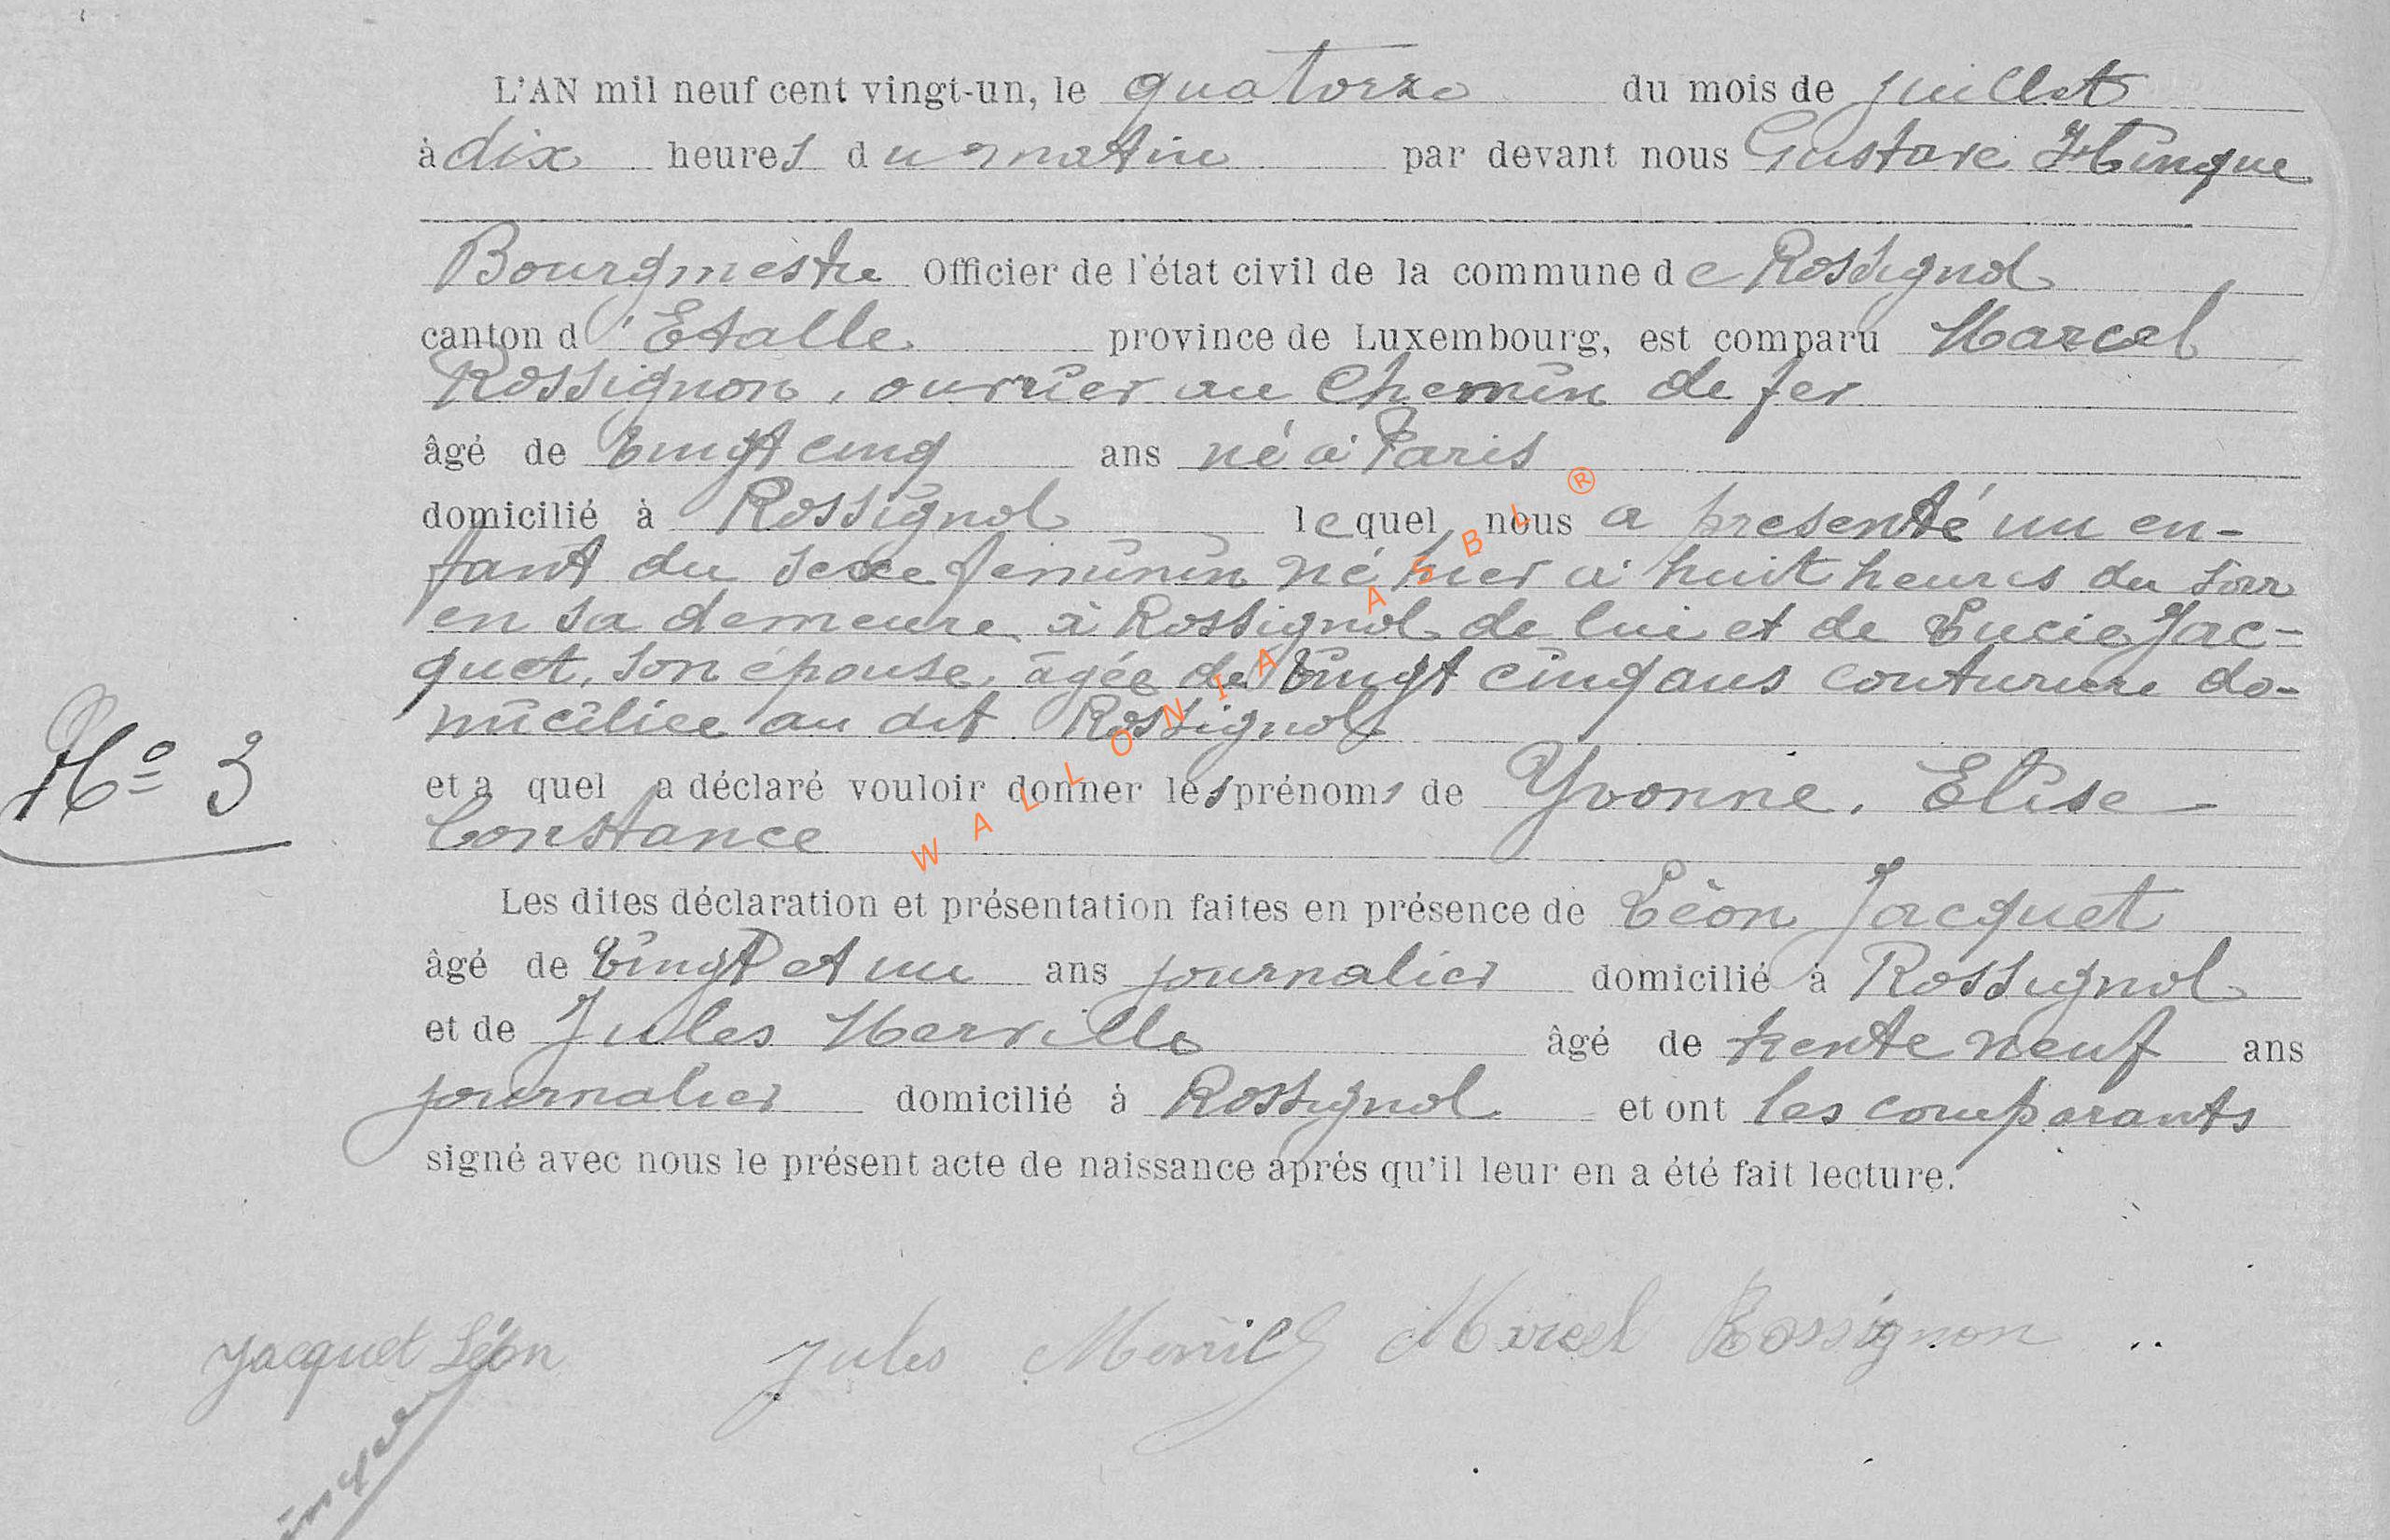 L'AN mil neuf cent vingt-un, le quatorze du mois de juillet
à dix heures du matin par devant nous Gustave Hinque
Bourgmestre Officier de l'état civil de la commune de Rossignol
canton d'Etalle province de Luxembourg, est comparu Marcel
Rossignon, ouvrier au chemin de fer
âgé de vingt cinq ans né à Paris
domicilié à Rossignol lequel nous a presenté un en-
fant du sexe feminin né hier à huit heures du soir
en sa demeure à Rossignol de lui et de Lucie Jac=
quet, son épouse, âgée de vingt cinq ans couturiere do-
miciliee au dit Rossignol
et a quel a déclaré vouloir donner les prénoms de Yvonne, Elise
Constance
Nº 3
Les dites déclaration et présentation faites en présence de Léon Jacquet
âgé de vingt et un ans journalier domicilié à Rossignol
et de Jules Merville âgé de trente neuf ans
journalier domicilié à Rossignol et ont les comparants
signé avec nous le présent acte de naissance après qu'il leur en a été fait lecture.
Jacquet Léon Jules Marcel Rossignon
WALLONIA ASBL ®